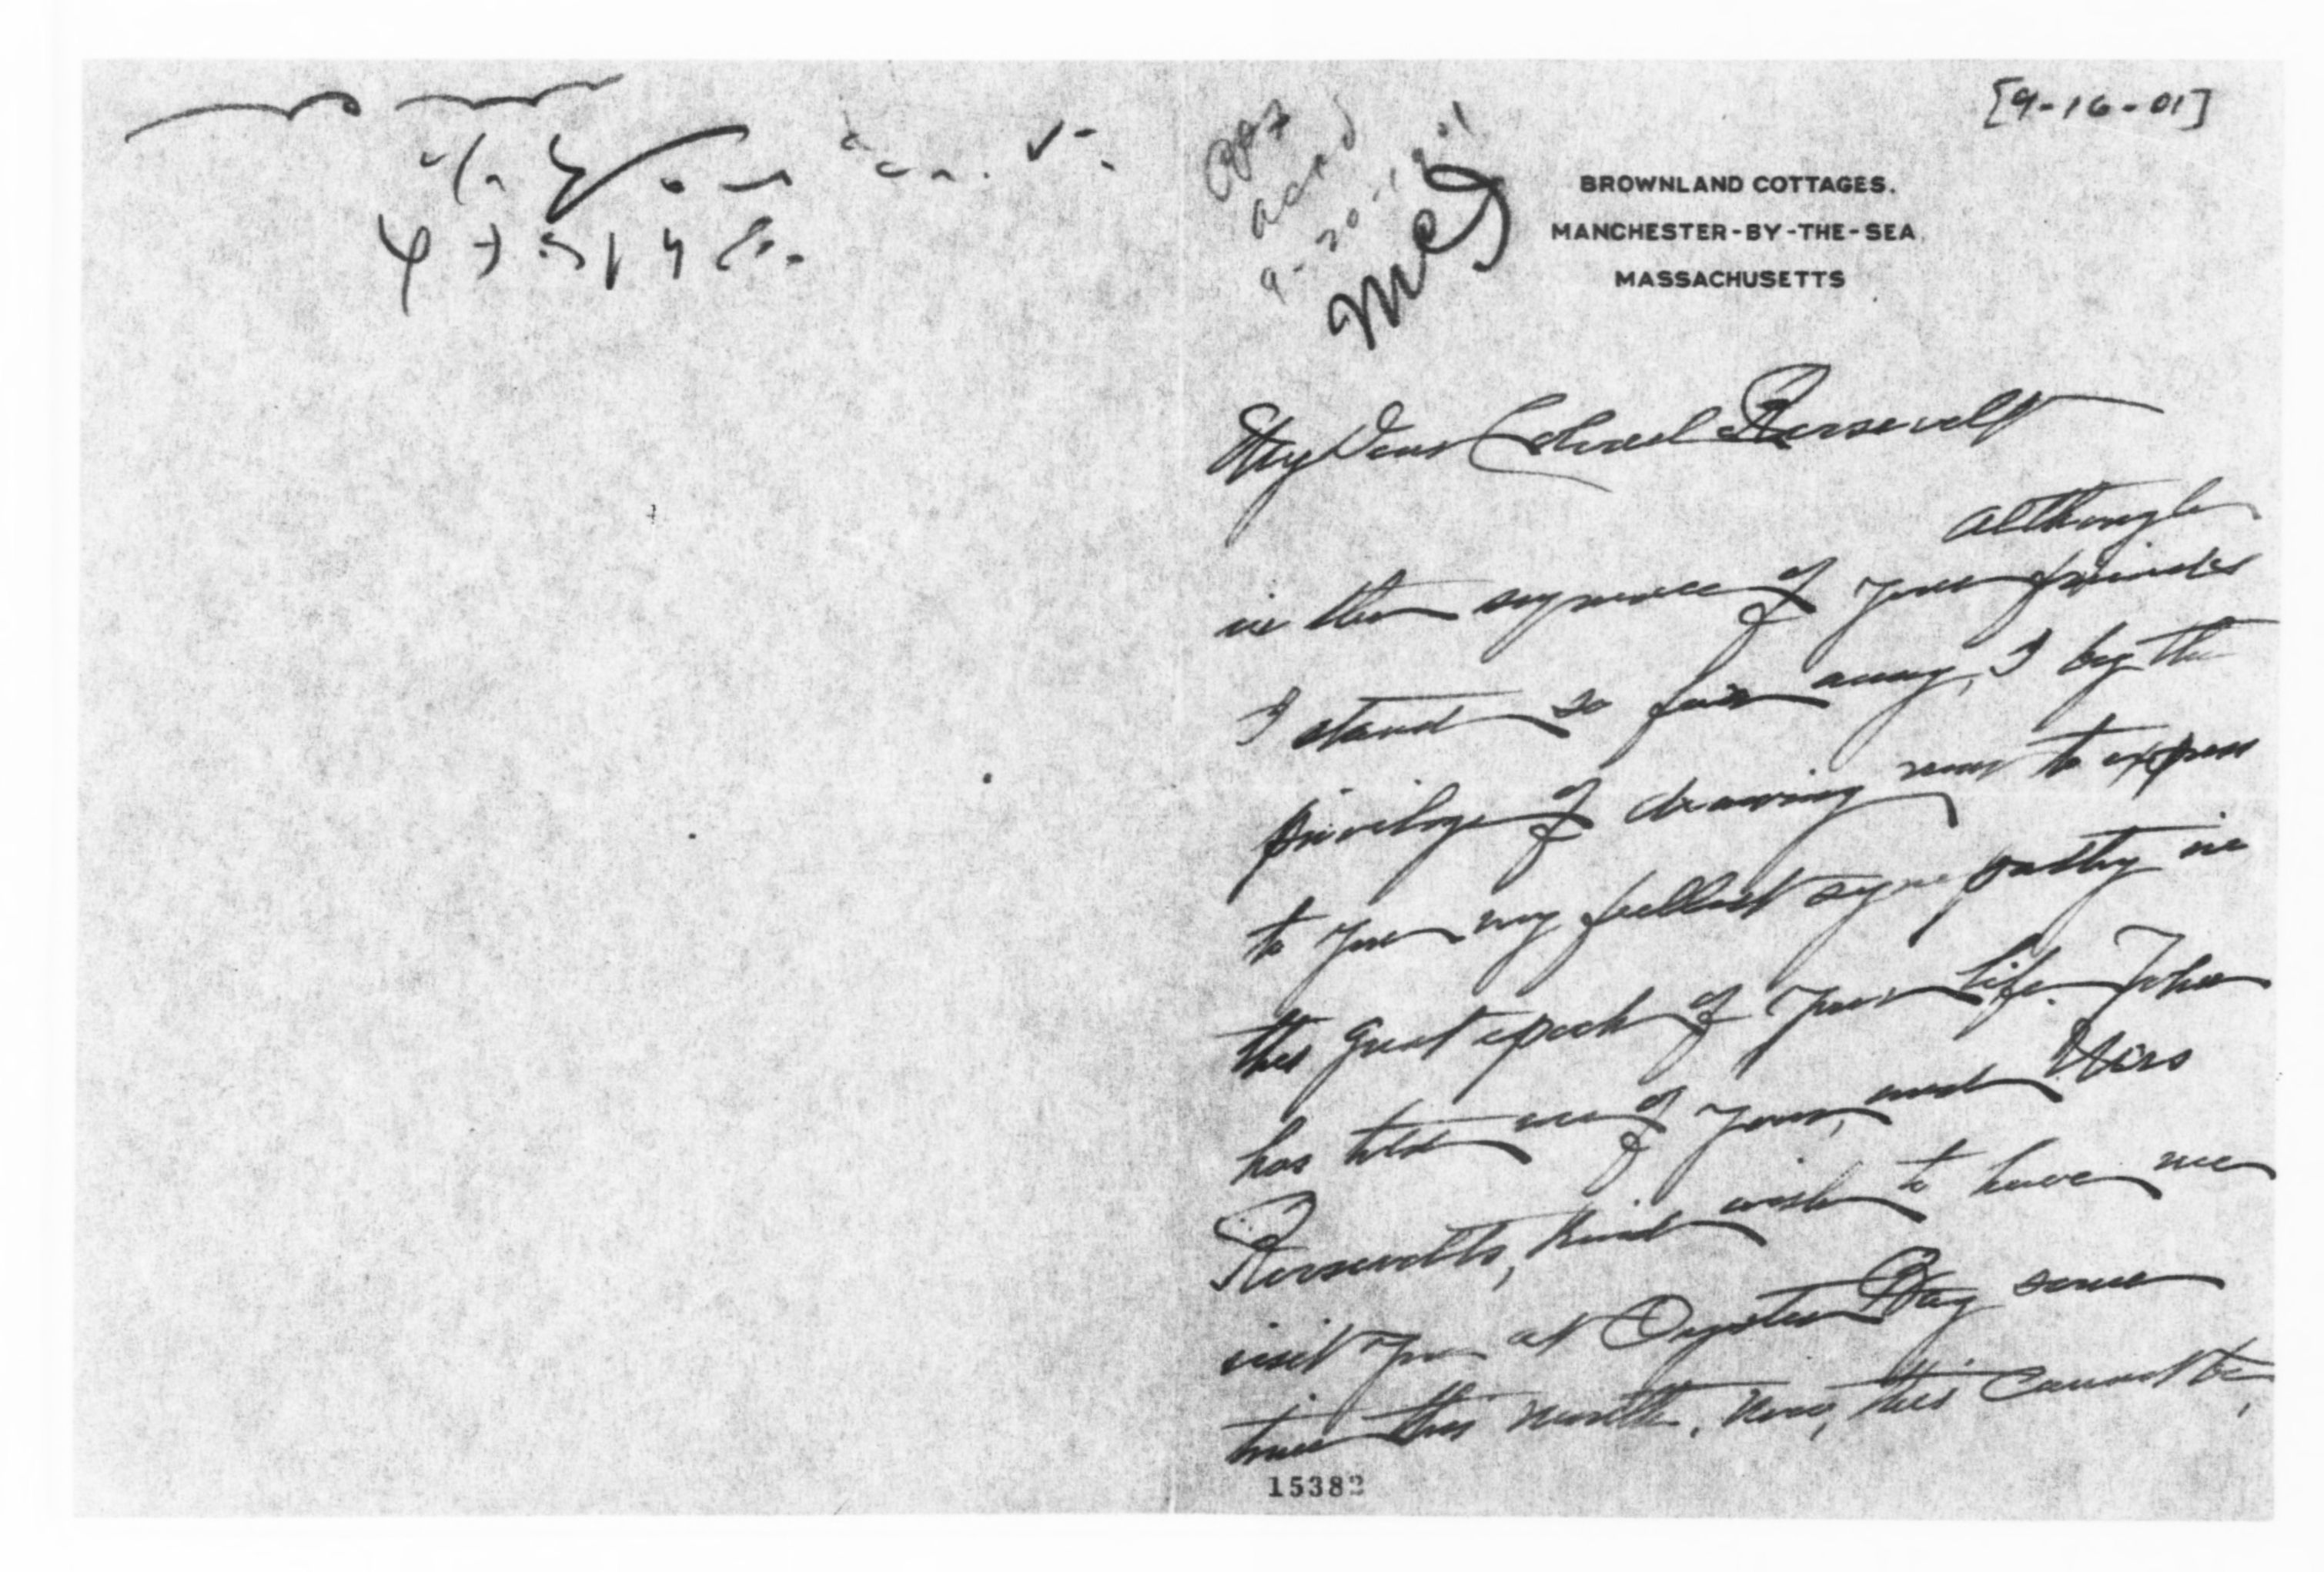 [9-16-01]
ackd
9-20-1901
BROWNLAND COTTAGES.
MANCHESTER-BY-THE-SEA
MASSACHUSETTS
My Dear Colonel Roosevelt
Although
in the sequence of your friends
I stand so far away, I beg the
privilege of drawing near to express
to you my fullest sympathy in
this great epoch of your life. John
has told me of your, and Mrs
Roosevelts, kind wish to have me
visit you at Oyster Bay some
time this month. Now, this cannot be,
15382